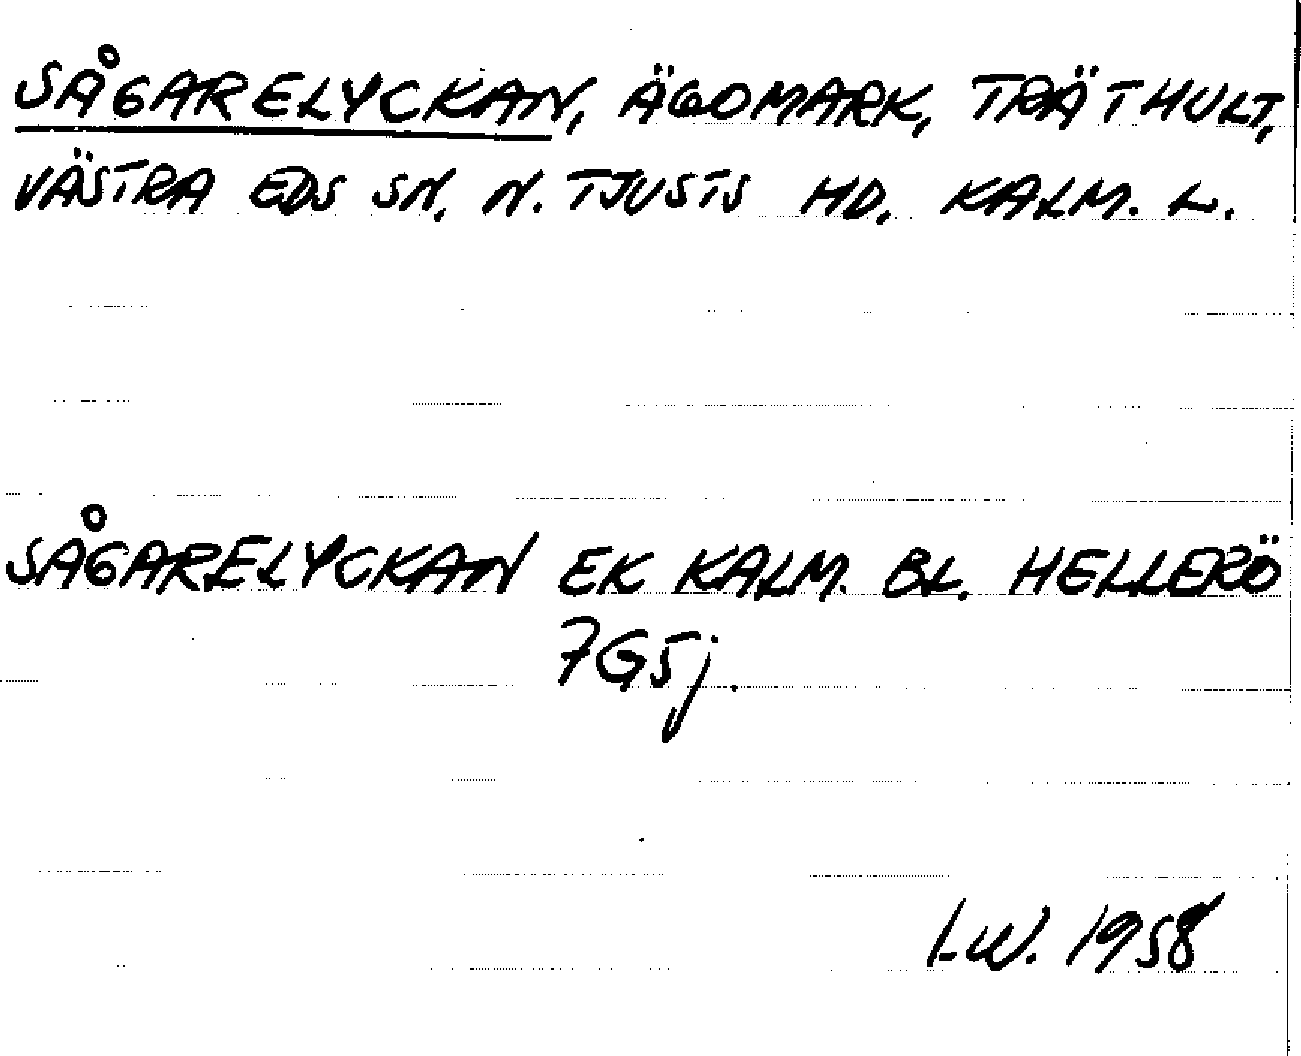 SÅGARELYCKAN, ÄGOMARK, TRÄTHULT,
VÄSTRA EDS SN. N. TJUSTS HD. KALM. L.
SÅGARELYCKAN EK KALM. BL. HELLERÖ
7G5j.
I.W. 1958